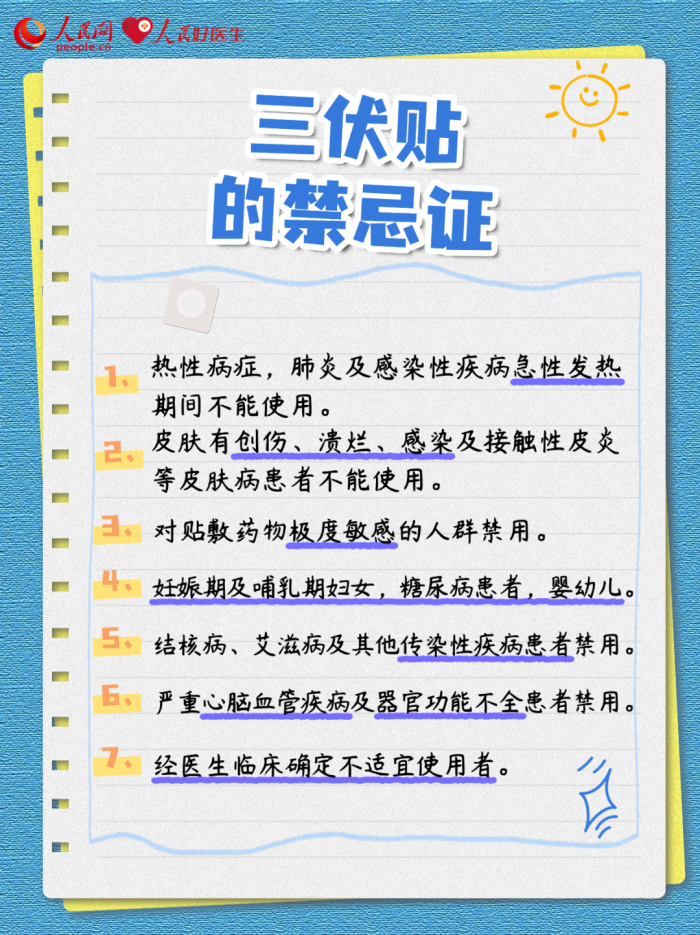 人民网
people.cn
人民好医生
三伏贴
的禁忌证
1、热性病症，肺炎及感染性疾病急性发热
期间不能使用。
2、皮肤有创伤、溃烂、感染及接触性皮炎
等皮肤病患者不能使用。
3、对贴敷药物极度敏感的人群禁用。
4、妊娠期及哺乳期妇女，糖尿病患者，婴幼儿。
5、结核病、艾滋病及其他传染性疾病患者禁用。
6、严重心脑血管疾病及器官功能不全患者禁用。
7、经医生临床确定不适宜使用者。